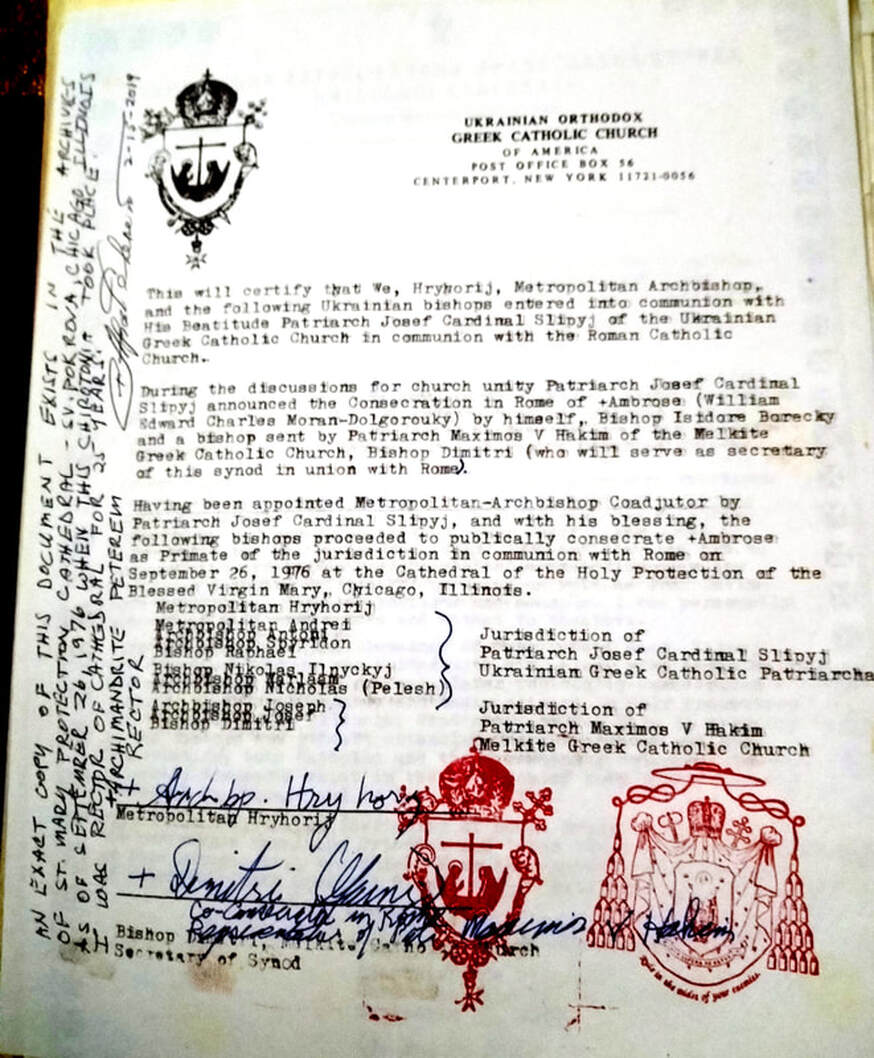 UKRAINIAN ORTHODOX
GREEK CATHOLIC CHURCH
OF AMERICA
POST OFFICE BOX 56
CENTERPORT, NEW YORK 11721-0056
This will certify that We, Hryhorij, Metropolitan Archbishop,
and the following Ukrainian bishops entered into communion with
His Beatitude Patriarch Josef Cardinal Slipyj of the Ukrainian
Greek Catholic Church in communion with the Roman Catholic
Church.
During the discussions for church unity Patriarch Josef Cardinal
Slipyj announced the Consecration in Rome of +Ambrose (William
Edward Charles Moran-Dolgorouky) by himself, Bishop Isidore Borecky
and a bishop sent by Patriarch Maximos V Hakim of the Melkite
Greek Catholic Church, Bishop Dimitri (who will serve as secretary
of this synod in union with Rome).
Having been appointed Metropolitan-Archbishop Coadjutor by
Patriarch Josef Cardinal Slipyj, and with his blessing, the
following bishops proceeded to publically consecrate +Ambrose
as Primate of the jurisdiction in communion with Rome on
September 26, 1976 at the Cathedral of the Holy Protection of the
Blessed Virgin Mary, Chicago, Illinois.
Metropolitan Hryhorij
Metropolitan Andrei
Archbishop Antoni
Archbishop Spyridon
Bishop Raphael
Bishop Nikolas Ilnyckyj
Archbishop Nicholas (Pelesh)
Jurisdiction of
Patriarch Josef Cardinal Slipyj
Ukrainian Greek Catholic Patriarcha
Archbishop Joseph
Archbishop Josef
Bishop Dimitri
Jurisdiction of
Patriarch Maximos V Hakim
Melkite Greek Catholic Church
+ Archbp. Hryhorij
Metropolitan Hryhorij
+ Dimitri
Co-Consecrator in Rome
Representative of Pat. Maximos V Hakim
Bishop Church
Secretary of Synod
in the midst of your enemies.
AN EXACT COPY OF THIS DOCUMENT EXISTS IN THE ARCHIVES
OF ST. MARY PROTECTION CATHEDRAL - SV. POKROVA, CHICAGO ILLINOIS
AS OF SEPTEMBER 26, 1976 WHEN THIS CHIROTONIA TOOK PLACE.
I WAS RECTOR OF CATHEDRAL FOR 25 YEARS.
+ARCHIMANDRITE PETEREM
RECTOR
2-15-2019